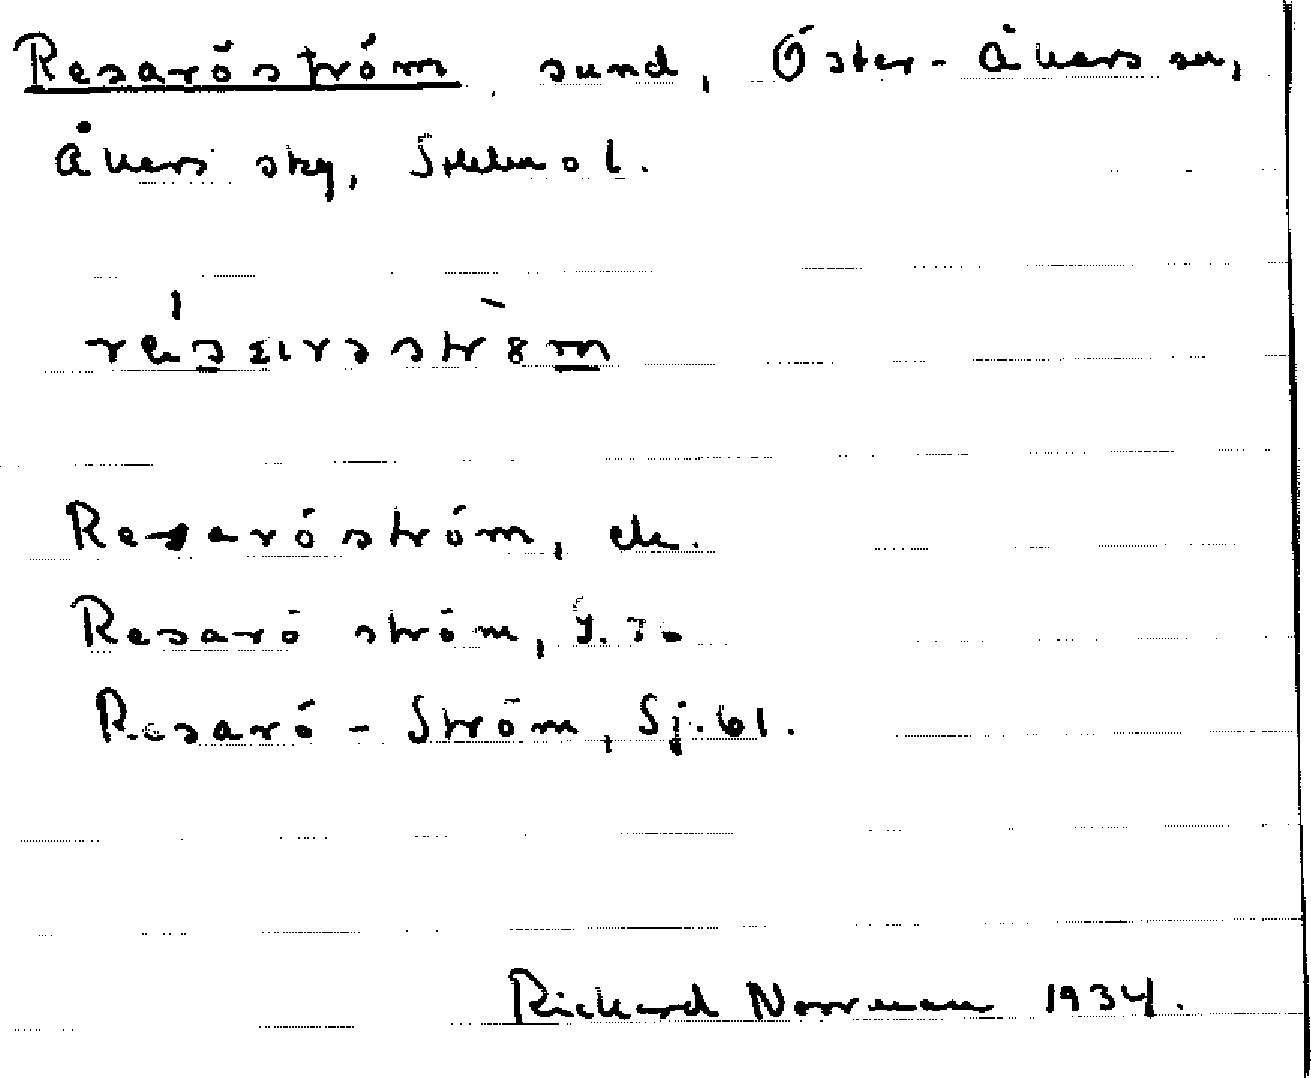 Resaröström sund, Öster-Åkers sn,
Åkers skg, Sthlms l.
Resaröström, ek.
Resarö ström, J. 30
Resarö - Ström, Sj. 61.
Rickard Norrman 1934.